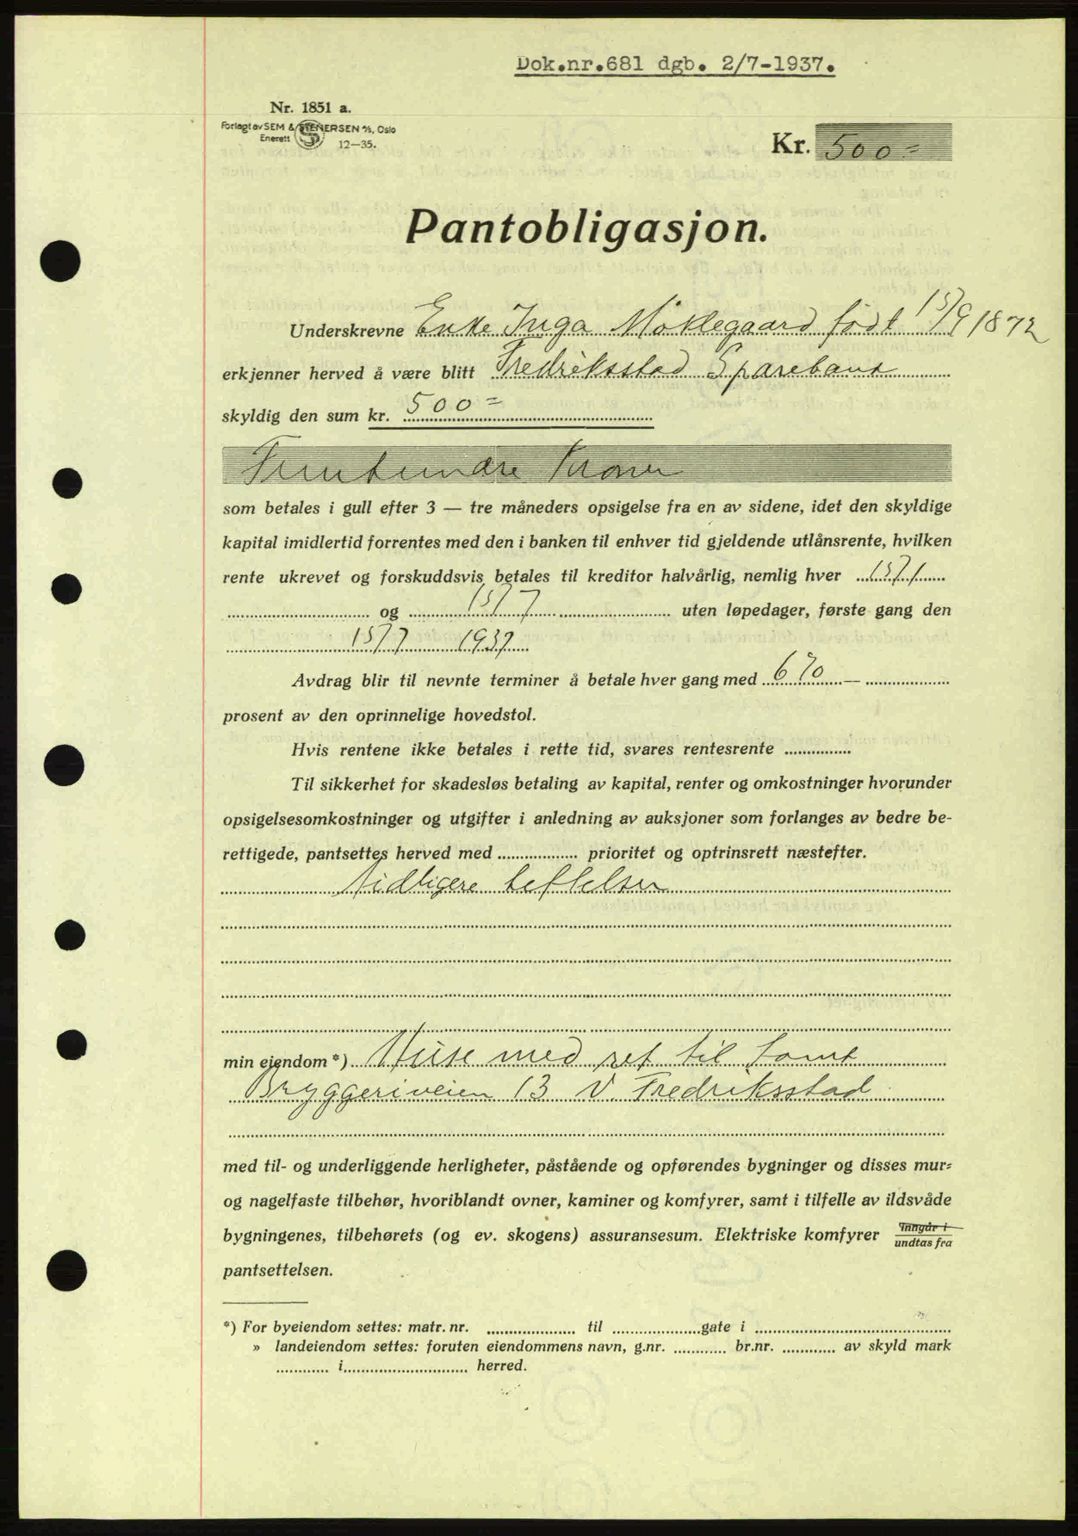 Dok.nr.681 dgb. 2/7-1937.
Nr. 1851 a.
Forlagt av SEM & STENERSEN A/S, Oslo
Enerett
12—35.
Kr. 500=
Pantobligasjon.
Underskrevne Enke Inga Moklegaard født 15/9 1872
erkjenner herved å være blitt Fredriksstad Sparebank
skyldig den sum kr. 500=
Femhundre Kroner
som betales i gull efter 3 — tre måneders opsigelse fra en av sidene, idet den skyldige
kapital imidlertid forrentes med den i banken til enhver tid gjeldende utlånsrente, hvilken
rente ukrevet og forskuddsvis betales til kreditor halvårlig, nemlig hver 15/1
og 15/7 uten løpedager, første gang den
15/7 1937
Avdrag blir til nevnte terminer å betale hver gang med 6% —
prosent av den oprinnelige hovedstol.
Hvis rentene ikke betales i rette tid, svares rentesrente
Til sikkerhet for skadesløs betaling av kapital, renter og omkostninger hvorunder
opsigelsesomkostninger og utgifter i anledning av auksjoner som forlanges av bedre be-
rettigede, pantsettes herved med prioritet og optrinsrett næstefter.
tidligere heftelser
min eiendom *) Huse med ret til tomt
Bryggeriveien 13 V. Fredriksstad
med til- og underliggende herligheter, påstående og opførendes bygninger og disses mur-
og nagelfaste tilbehør, hvoriblandt ovner, kaminer og komfyrer, samt i tilfelle av ildsvåde
bygningenes, tilbehørets (og ev. skogens) assuransesum. Elektriske komfyrer inngår i
undtas fra
pantsettelsen.
*) For byeiendom settes: matr. nr. til gate i
» landeiendom settes: foruten eiendommens navn, g.nr. br.nr. av skyld mark
i herred.